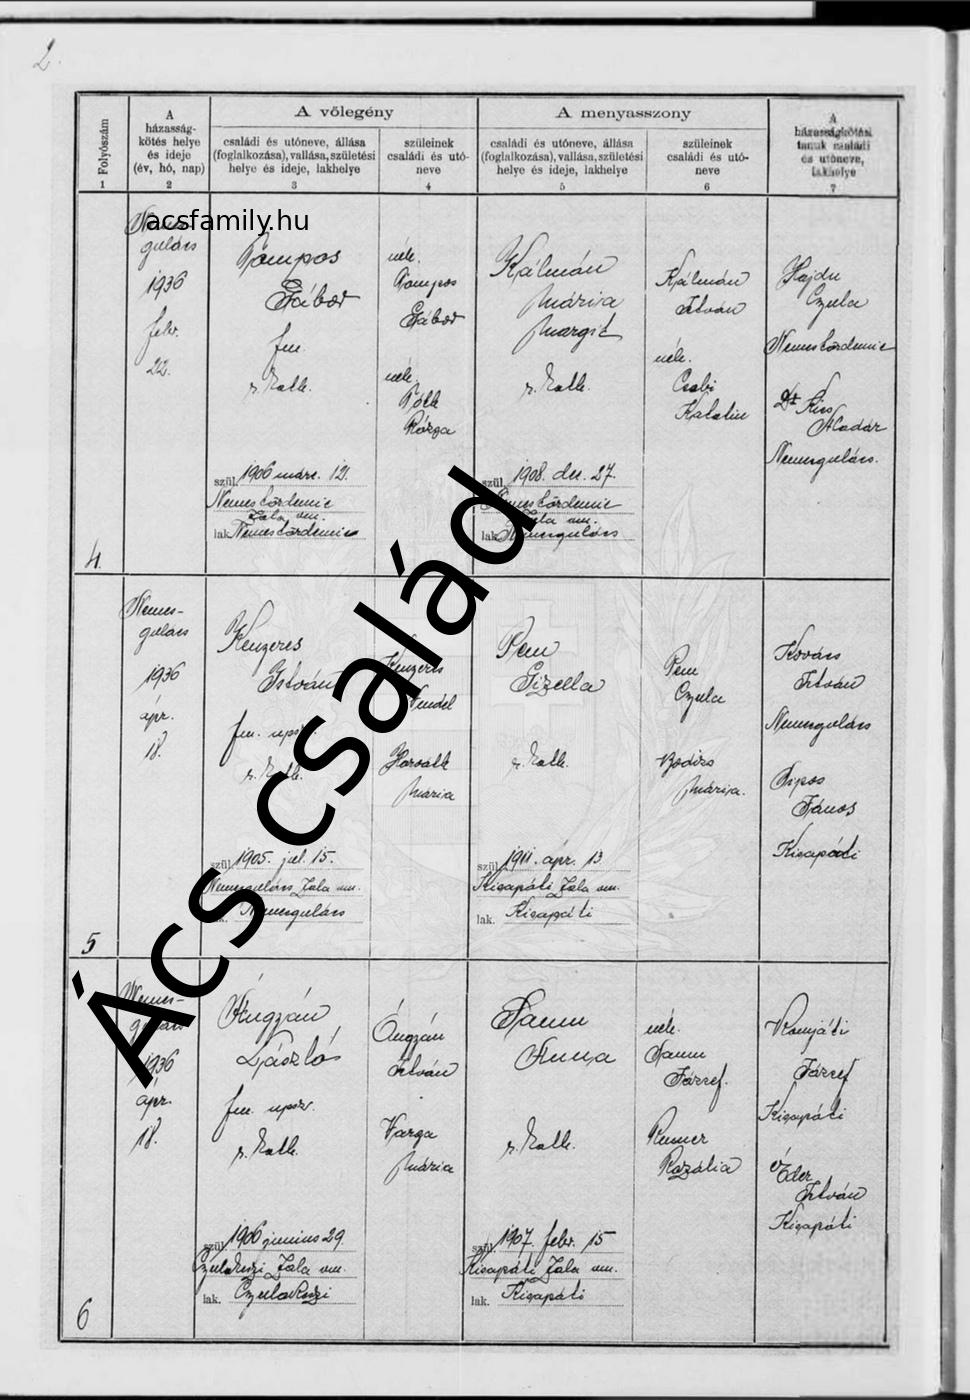 2.
Folyószám
1
A
házasság-
kötés helye
és ideje
(év, hó, nap)
2
A vőlegény
családi és utóneve, állása
(foglalkozása), vallása, születési
helye és ideje, lakhelye
3
szüleinek
családi és utó-
neve
4
A menyasszony
családi és utóneve, állása
(foglalkozása), vallása, születési
helye és ideje, lakhelye
5
szüleinek
családi és utó-
neve
6
A
házasságkötési
tanuk családi
és utóneve,
lakhelye
7
acsfamily.hu
Ács család
4.
Nemes-
gulács
1936
febr.
22.
Pompos
Gábor
fm.
r. kath.
szül. 1906 márc. 12.
Nemestördemic
Zala vm.
lak. Nemestördemic
néh.
Pompos
Gábor
néh.
Tóth
Rózsa
Kálmán
Mária
Margit
r. kath.
szül. 1908. dec. 27.
Nemestördemic
Zala vm.
lak. Nemesgulács
Kálmán
István
néh.
Csabi
Katalin
Hajdu
Gyula
Nemestördemic
Dr Kiss
Aladár
Nemesgulács.
5
Nemes-
gulács
1936
ápr.
18.
Kenyeres
István
fm. npsz.
r. kath.
szül. 1905. jul. 15.
Nemesgulács Zala vm.
Nemesgulács
Kenyeres
Vendel
Horváth
Mária
Pem
Gizella
r. kath.
szül. 1911. ápr. 13
Kisapáti Zala vm.
lak. Kisapáti
Pem
Gyula
Bodiss
Mária.
Kovács
István
Nemesgulács
Sipos
János
Kisapáti
6
Nemes-
gulács
1936
ápr.
18.
Ángyán
László
fm. npsz.
r. kath.
szül. 1906 junius 29.
Gyulakeszi Zala vm.
lak. Gyulakeszi
Ángyán
István
Varga
Mária
Samu
Anna
r. kath.
szül. 1907. febr. 15
Kisapáti Zala vm.
lak. Kisapáti
néh.
Samu
József.
Remer
Rozália
József
Kisapáti
Éder
István
Kisapáti